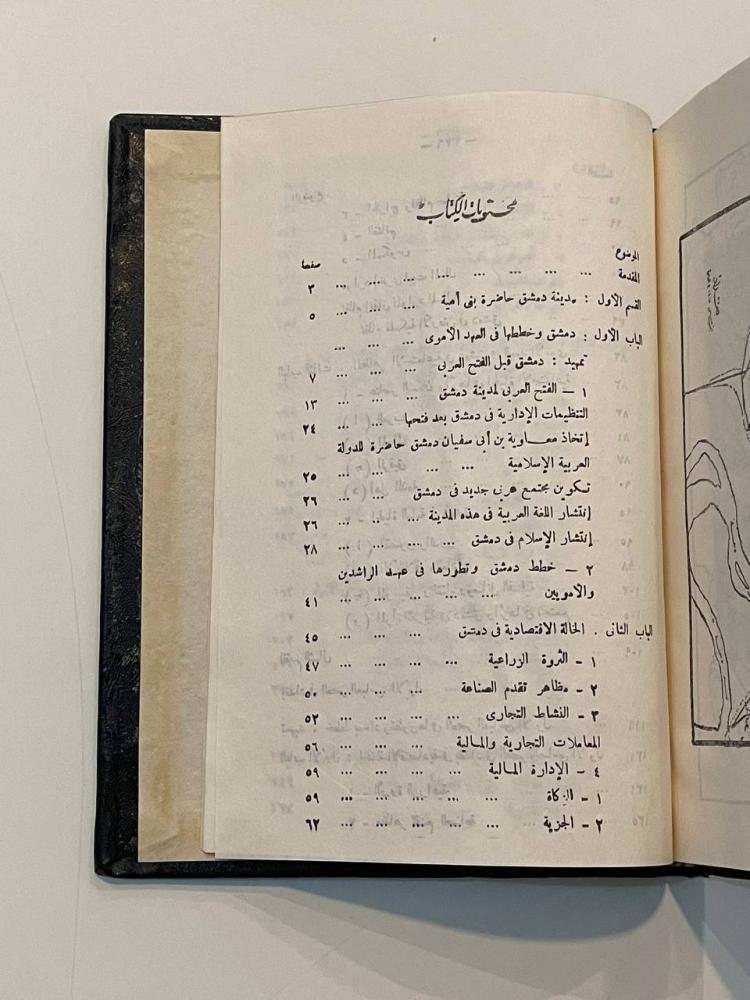 محتويات الكتاب
الموضوع صفحة
المقدمة ... ... ... ... ... ... ... ٣
القسم الأول : مدينة دمشق حاضرة بنى أمية ... ... ... ٥
الباب الأول : دمشق وخططها فى العهد الأموى ... ... ...
تمهيد : دمشق قبل الفتح العربى ... ... ... ٧
١ — الفتح العربى لمدينة دمشق ... ... ... ١٣
التنظيمات الإدارية فى دمشق بعد فتحها ... ... ٢٤
إتخاذ معاوية بن أبى سفيان دمشق حاضرة للدولة
العربية الإسلامية ... ... ... ... ٢٥
تكوين مجتمع عربى جديد فى دمشق ... ... ٢٦
إنتشار اللغة العربية فى هذه المدينة ... ... ... ٢٦
إنتشار الإسلام فى دمشق ... ... ... ... ٢٨
٢ — خطط دمشق وتطورها فى عهد الراشدين
والأمويين ... ... ... ... ... ٤١
الباب الثانى . الحالة الاقتصادية فى دمشق ... ... ... ٤٥
١ - الثروة الزراعية ... ... ... ... ٤٧
٢ - مظاهر تقدم الصناعة ... ... ... ٥٠
٣ - النشاط التجارى ... ... ... ... ٥٢
المعاملات التجارية والمالية ... ... ... ٥٦
٤ - الإدارة المالية ... ... ... ... ٥٩
١ - الزكاة ... ... ... ... ... ٥٩
٢ - الجزية ... ... ... ... ... ٦٢